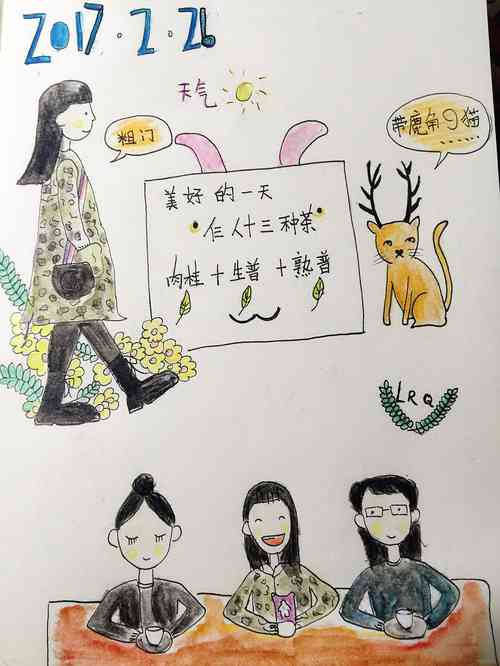 2017.2.26
天气
粗门
带鹿角の猫
美好的一天
仨人+三种茶
肉桂+生普+熟普
LRQ